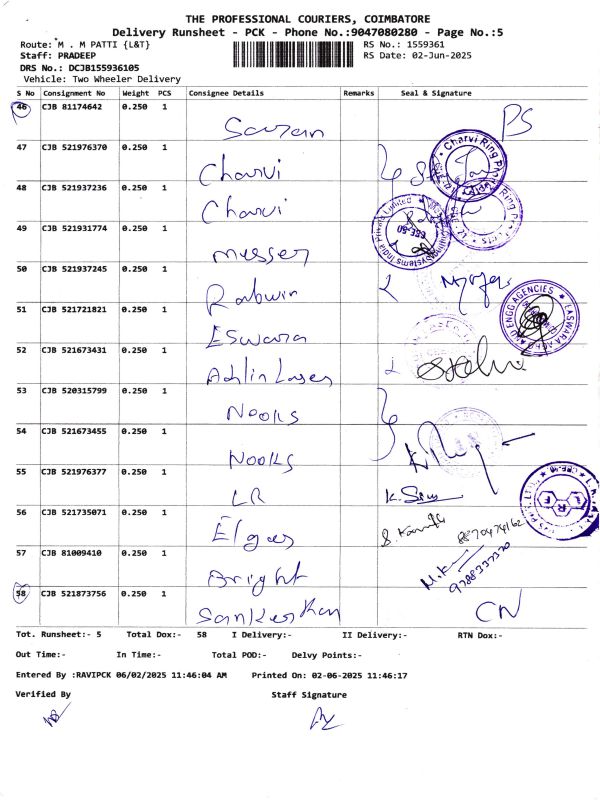 THE PROFESSIONAL COURIERS, COIMBATORE
Delivery Runsheet - PCK - Phone No.:9047080280 - Page No.:5
Route: M . M PATTI {L&T}
RS No.: 1559361
Staff: PRADEEP
RS Date: 02-Jun-2025
DRS No.: DCJB155936105
Vehicle: Two Wheeler Delivery
S No Consignment No Weight PCS Consignee Details Remarks Seal & Signature
46 CJB 81174642 0.250 1
Saran PS
47 CJB 521976370 0.250 1
Charvi
48 CJB 521937236 0.250 1
Charvi
49 CJB 521931774 0.250 1
messer
50 CJB 521937245 0.250 1
51 CJB 521721821 0.250 1
Eswara
52 CJB 521673431 0.250 1
53 CJB 520315799 0.250 1
Nooks
54 CJB 521673455 0.250 1
Nooks
55 CJB 521976377 0.250 1
LR
56 CJB 521735071 0.250 1
Elgas
57 CJB 81009410 0.250 1
Bright
58 CJB 521873756 0.250 1
CN
Tot. Runsheet:- 5 Total Dox:- 58 I Delivery:- II Delivery:- RTN Dox:-
Out Time:- In Time:- Total POD:- Delvy Points:-
Entered By :RAVIPCK 06/02/2025 11:46:04 AM Printed On: 02-06-2025 11:46:17
Verified By Staff Signature